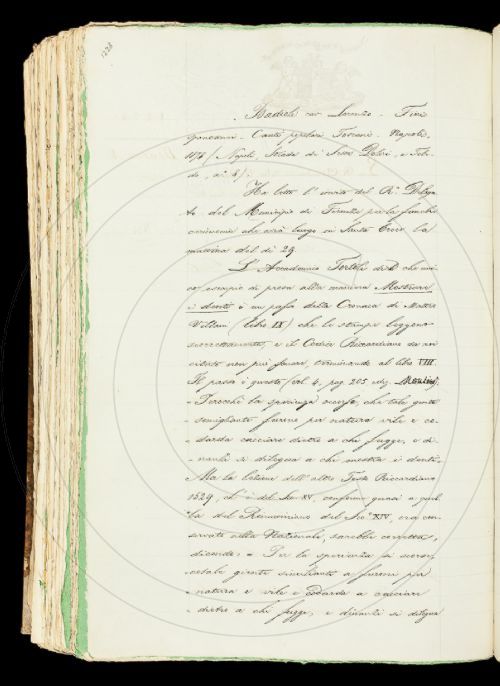 1228
Bartoli cav. Lorenzo.
Canti popolari Toscani. Napoli,
187 / Napoli, Strada di
Ha letto l'invito del R.º Delega-
to del Municipio di Firenze per la funebre
cerimonia che avrà luogo in Santa Croce la
mattina del dì 29.
L'Accademico Tortoli che uni-
co esempio di prosa alla maniera Mostrare
i denti è un passo della Cronaca di Matteo
Villani (libro IX) che le stampe leggono
scorrettamente, e il Codice Riccardiano
citato non può giovare, terminando al libro VIII.
Il passo è questo (vol. 4, pag. 205 ediz. Moutier)
- Perocchè la sperienza occorse, che tale gente
- simigliante furono per natura vile e co-
- darda cacciare dietro a chi fugge, e di-
- nanzi si dilegua a chi mostra i denti.
Ma la lezione dell'altro Testo Riccardiano
1529, ch'è del Sec. XV, conforme quasi a quel-
la del Ricasoliano del Sec.º XIV, ora con-
servato alla Nazionale, sarebbe corretta,
dicendo: - Per la sperienza si
cotale gente simigliante a furono per
- natura e vile e codarda a cacciare
- dietro a chi fugge, e dinanzi si dilegua